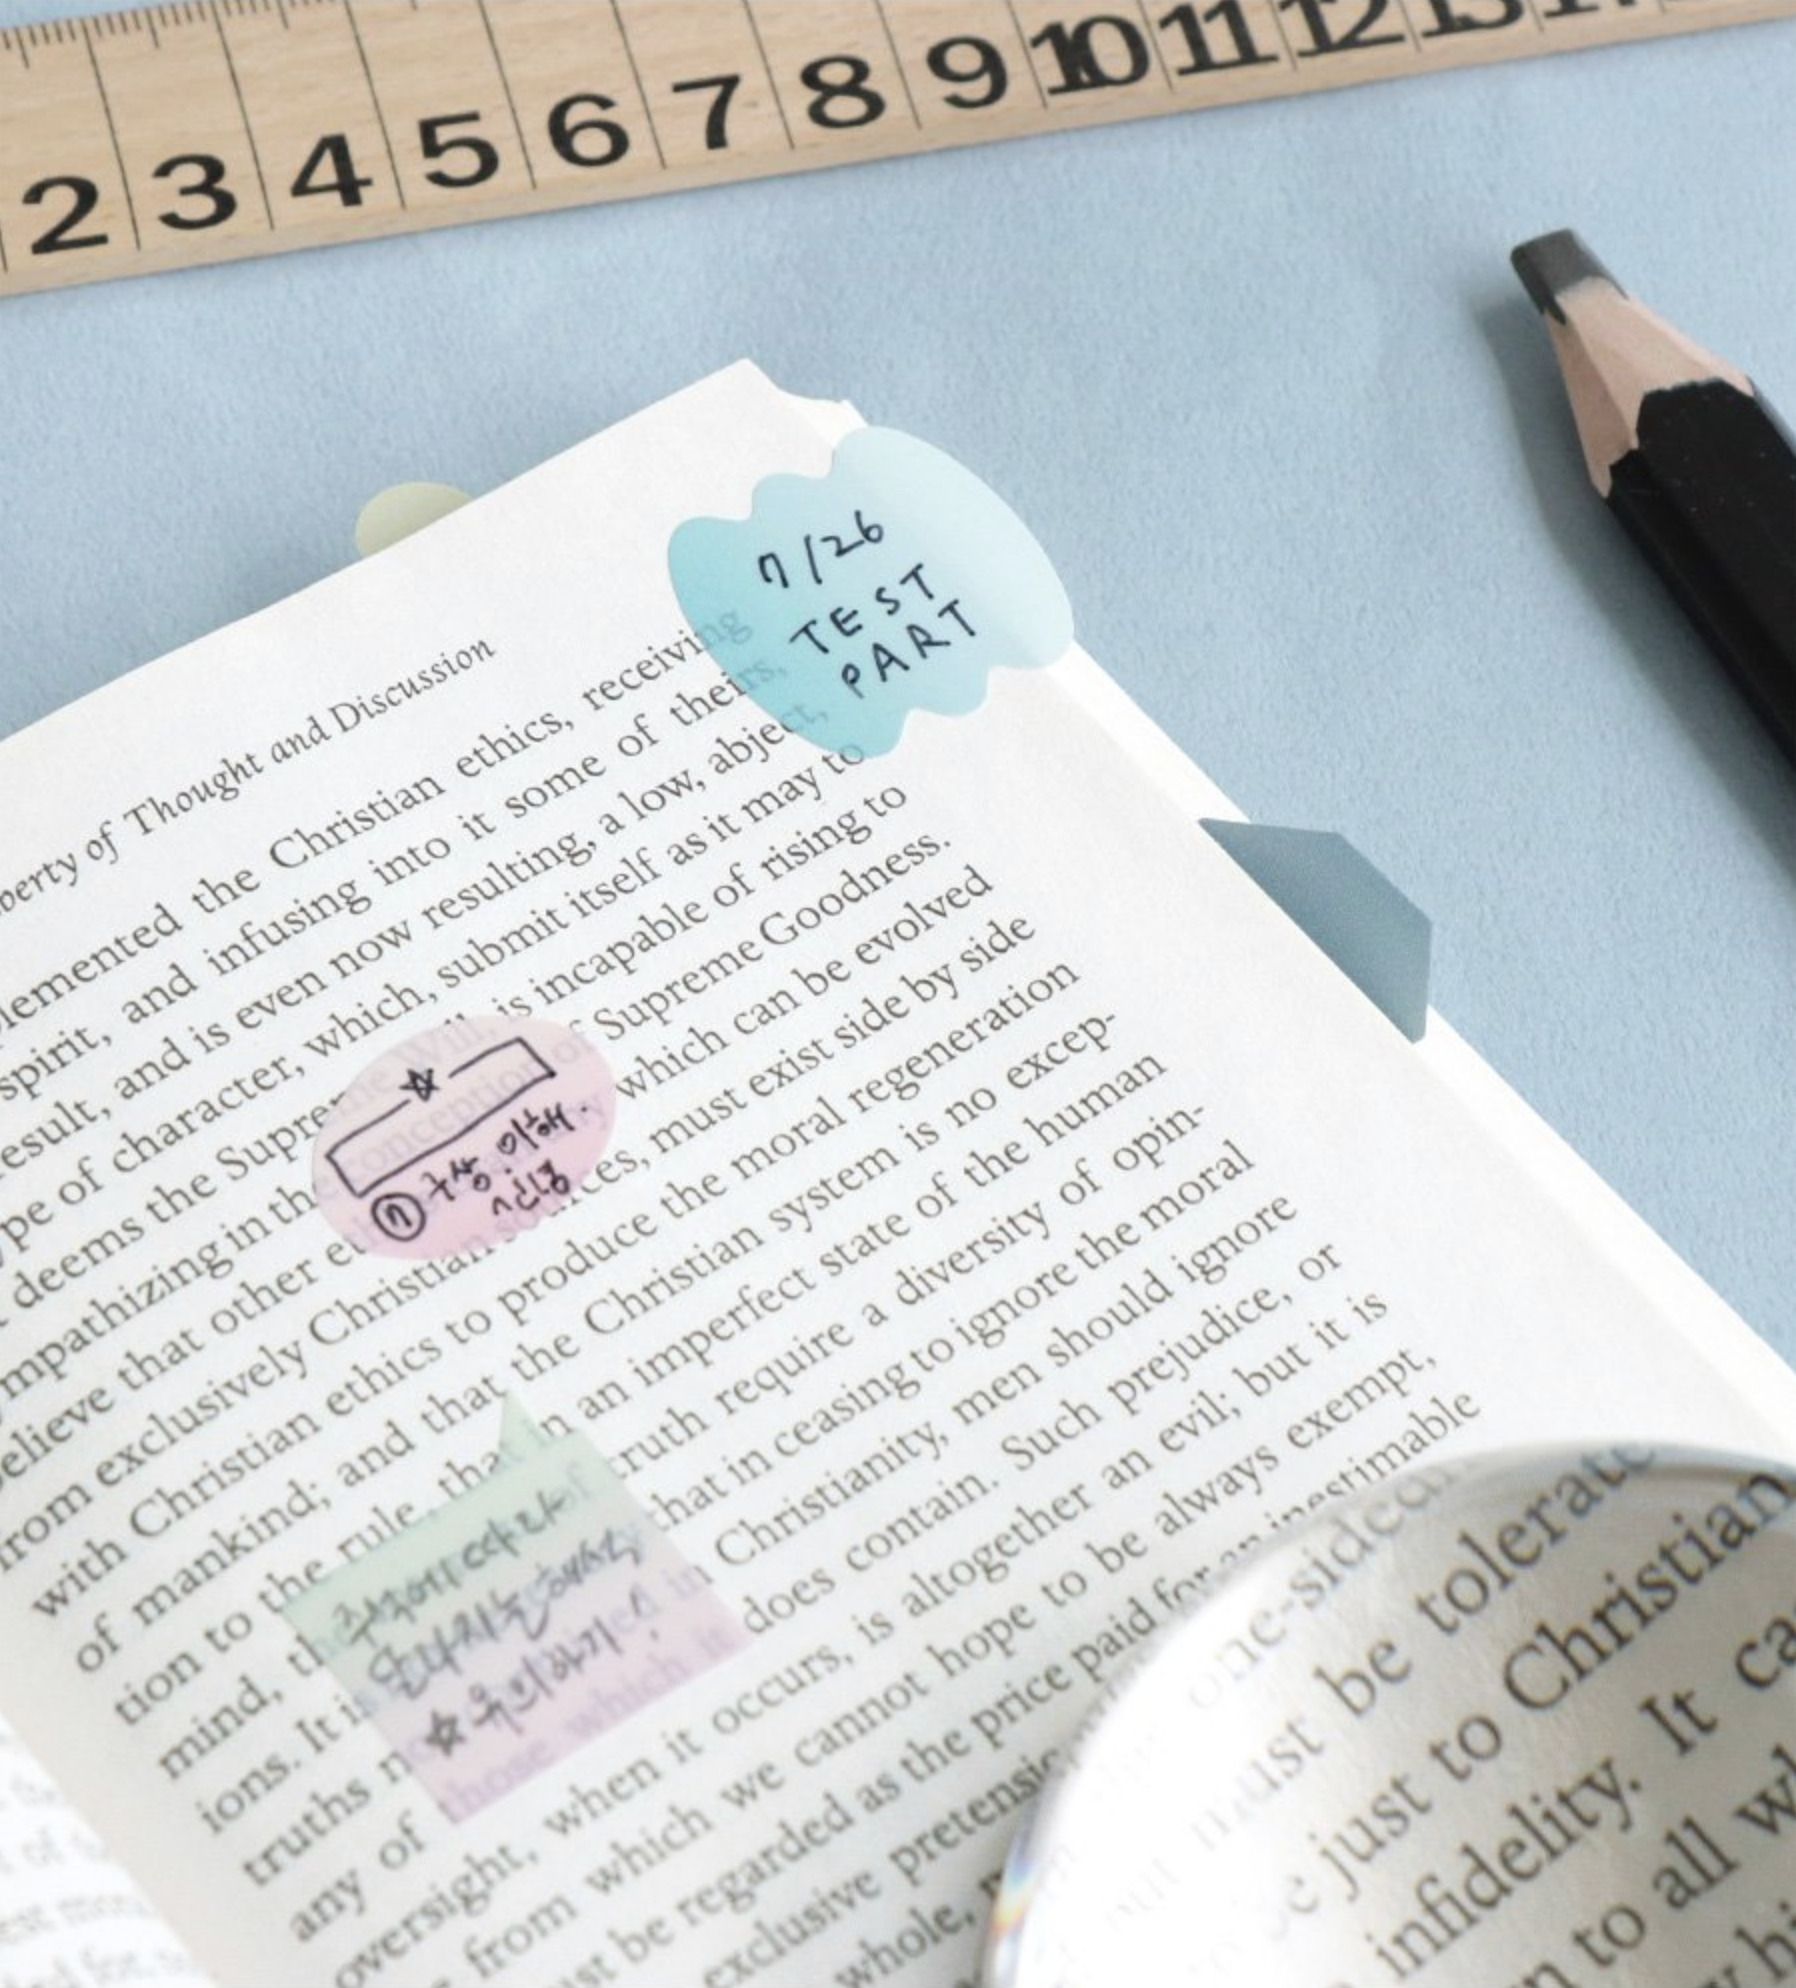 2 3 4 5 6 7 8 9 10 11 12 13
7/26
TEST
PART
berty of Thought and Discussion
lemented the Christian ethics, receiving
spirit, and infusing into it some of theirs,
esult, and is even now resulting, a low, abject,
pe of character, which, submit itself as it may to
deems the Supreme Will, is incapable of rising to
mpathizing in the conception of Supreme Goodness.
elieve that other which can be evolved
from exclusively Christian sources, must exist side by side
with Christian ethics to produce the moral regeneration
of mankind; and that the Christian system is no excep-
tion to the rule, that in an imperfect state of the human
mind, of truth require a diversity of opin-
ions. It is that in ceasing to ignore the moral
truths in Christianity, men should ignore
any of those which it does contain. Such prejudice, or
oversight, when it occurs, is altogether an evil; but it is
from which we cannot hope to be always exempt,
ust be regarded as the price paid for an inestimable
exclusive pretensi
whole,
⑦ 구상 이해
주석에 따라
달라지는 해석
☆ 유의하기!
one-sided
must be tolerate
e just to Christian
infidelity. It ca
to all w
hi